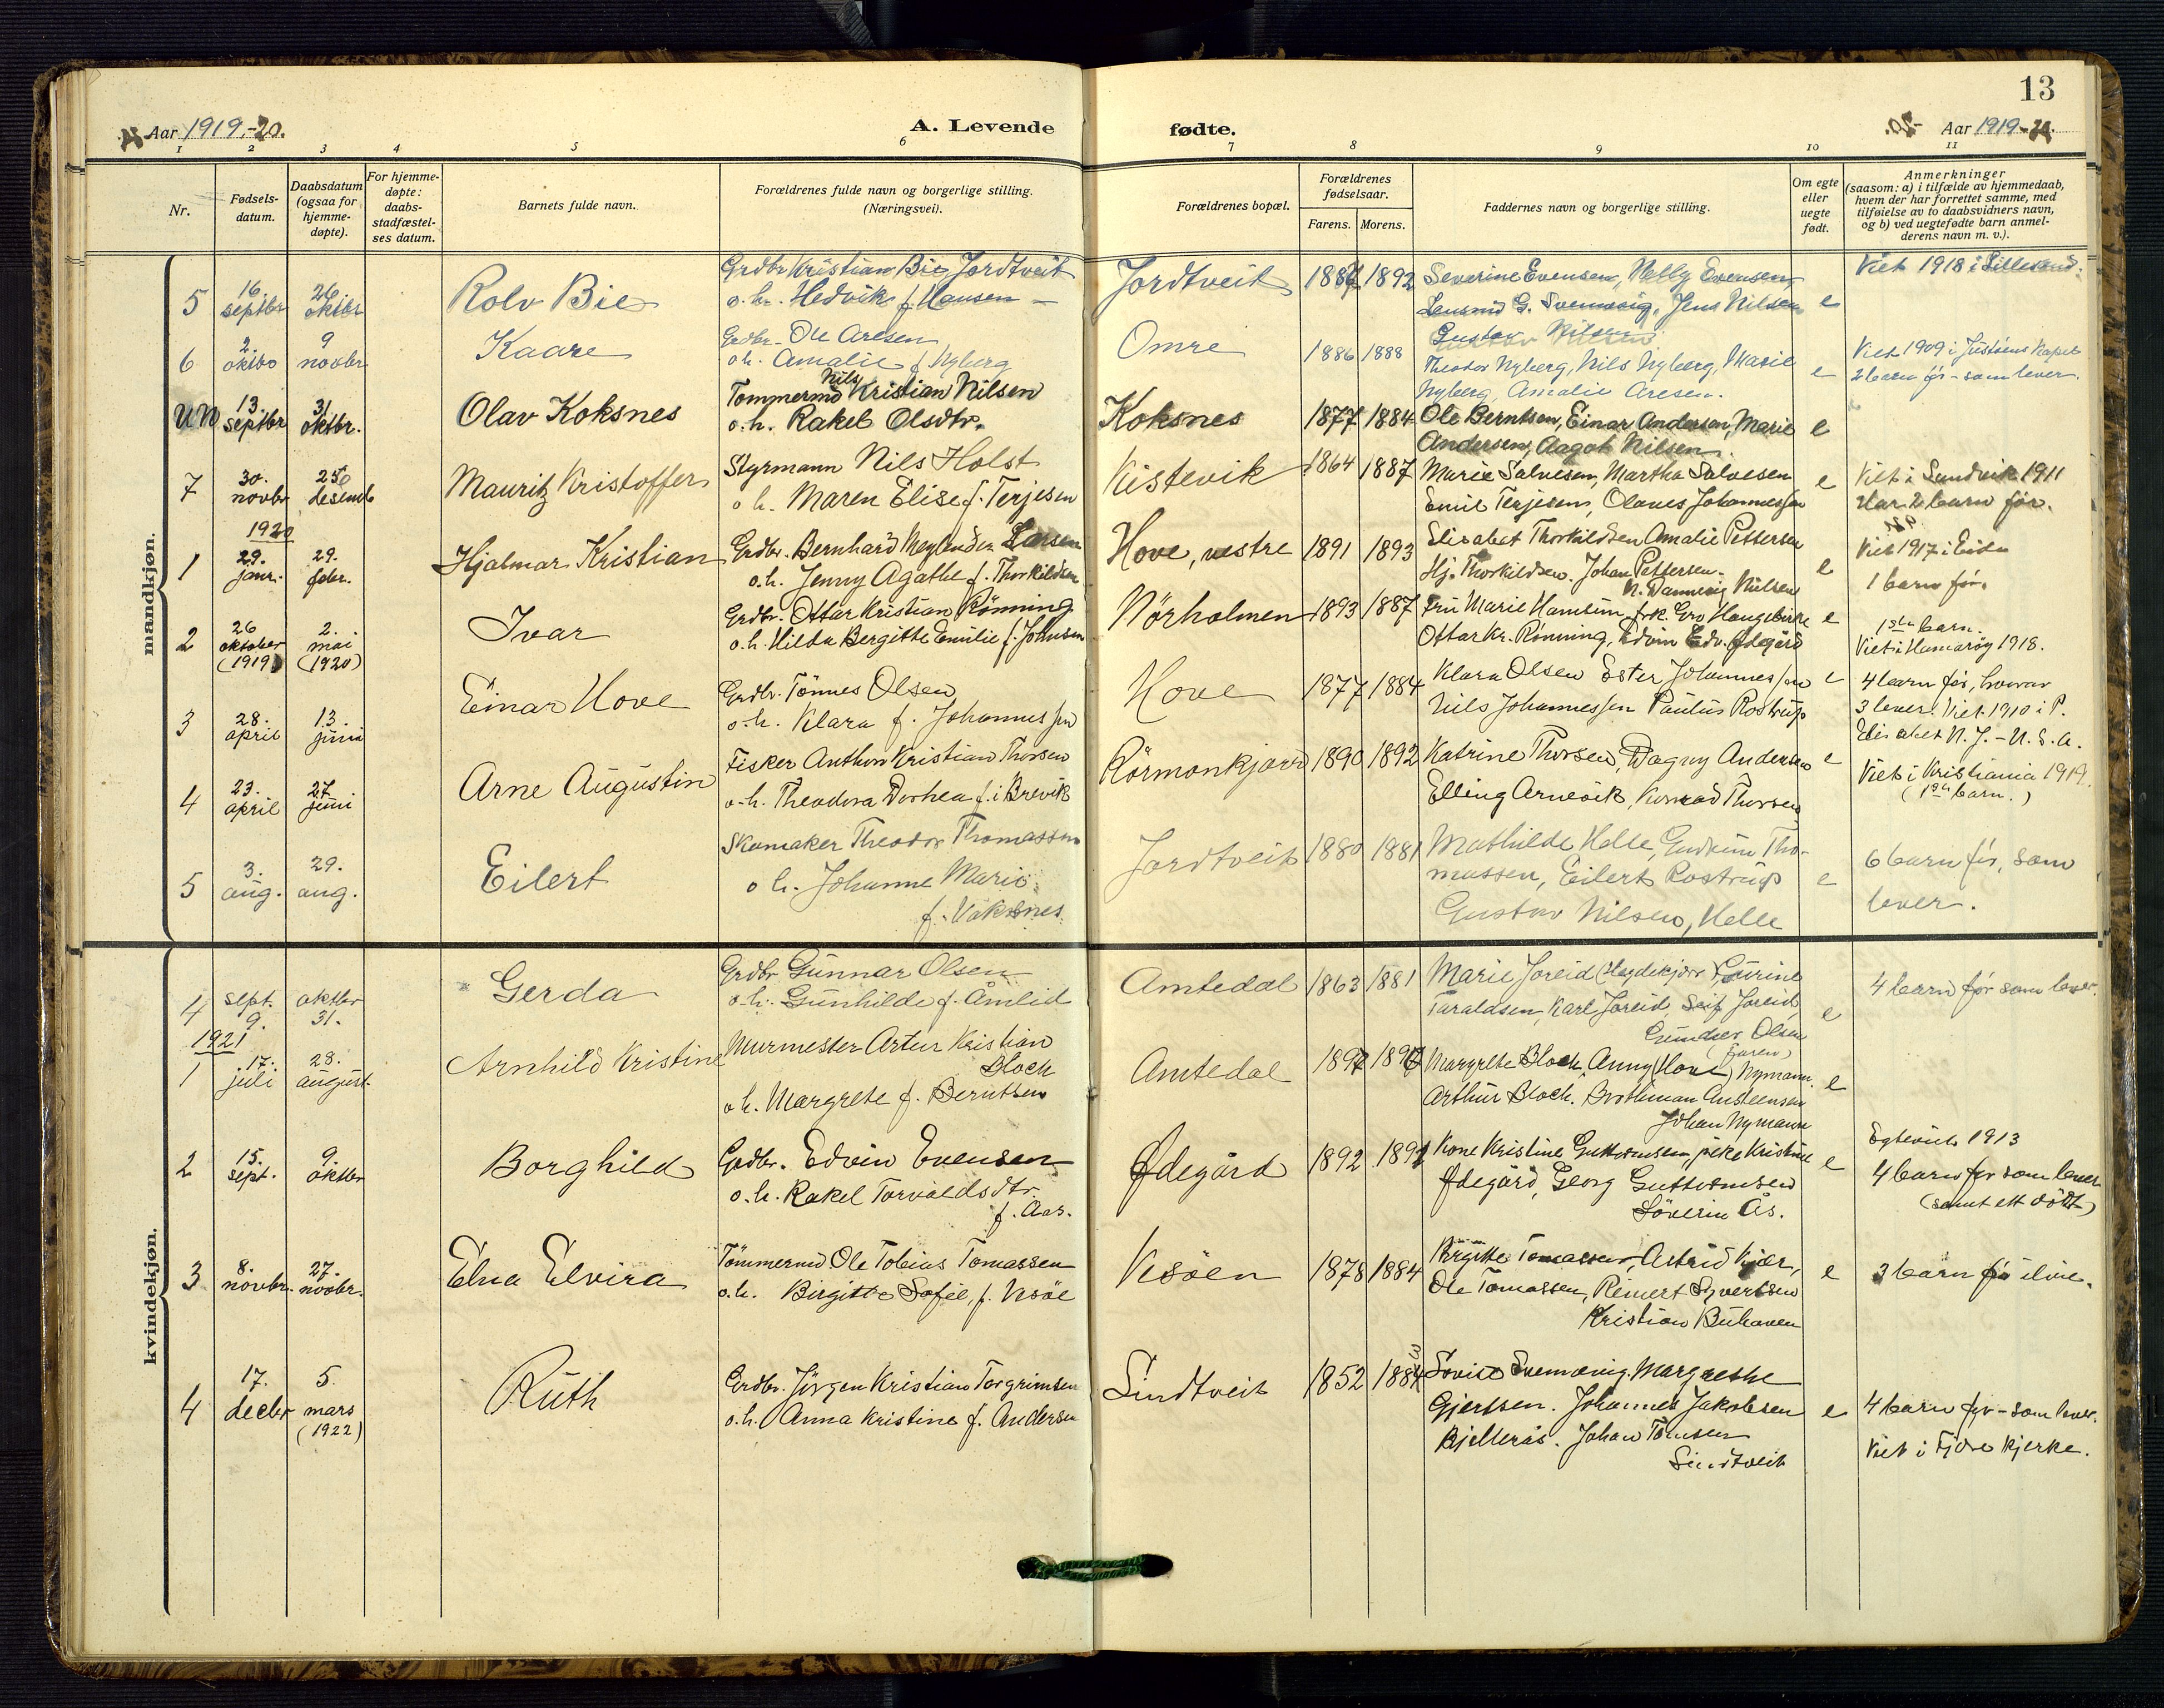 13
Aar 1919.-20.
A. Levende fødte.
-20. Aar 1919-
1 2 3 4 5 6 7 8 9 10 11
Nr.
Fødsels-
datum.
Daabsdatum
(ogsaa for
hjemme-
døpte).
For hjemme-
døpte:
daabs-
stadfæstel-
ses datum.
Barnets fulde navn.
Forældrenes fulde navn og borgerlige stilling.
(Næringsvei).
Forældrenes bopæl.
Forældrenes
fødselsaar.
Farens. Morens.
Faddernes navn og borgerlige stilling.
Om egte
eller
uegte
født.
Anmerkninger
(saasom: a) i tilfælde av hjemmedaab,
hvem der har forrettet samme, med
tilføielse av to daabsvidners navn,
og b) ved uegtefødte barn anmel-
derens navn m. v.).
mandkjøn.
5
16.
septbr
26
oktbr
Rolv Bie
Grdbr Kristian Bie Jordtveit
o. h. Hedvik f. Hansen
Jordtveit
1892
Severine Evensen, Nelly Evensen
G. Jens Nilsen
Gustav Nilsen
e
Viet 1918 i Lillesand.
6
2.
oktbo
9
novbr
Kaare
Grdbr. Ole Aresen
o h. Amalie f. Nyberg
Omre
1886 1888
Theodor Nyberg, Nils Nyberg, Marie
Nyberg, Amalie Aresen.
e
Viet 1909 i Justøens Kapel
2 barn før - som lever.
UN
13.
septbr
31
oktbr.
Olav Koksnes
Nils
Tømmermd Kristian Nilsen
o. h. Rakel Olsdtr.
Koksnes
1877 1884
Ole Berntsen, Einar Andersen, Marie
Andersen, Aagot Nilsen.
e
7
30.
novbr
desemb
Mauritz Kristoffer
Styrmann Nils Holst
o h. Maren Elise f. Terjesen
Kistevik
1864 1887
Marie Salvesen, Martha Salvesen
Emil Terjesen, Olaves Johannessen
e
Viet i Sundvik 1911
Har 2 barn før.
1920
1
29.
janr.
29.
febr.
Hjalmar Kristian
Grdbr. Bernhard Larsen
o. h. Jenny Agathe f. Thorkildsen
Hove, vestre
1891 1893
Elisabet Thorkildsen Amalie Pettersen
Hj. Thorkildsen. Johan Pettersen.
N. Dannevig Nilsen
e
Viet 1917 i Eide
1 barn før.
2
26
oktober
(1919)
2.
mai
(1920)
Ivar
Grdbr. Ottar Kristian Rönning
o. h. Hilda Bergitte Emilie f. Johnsen
Nörholmen
1893 1887
Fru Marie Hamsun, frk. Gro Haugebirke
Ottar Kr. Rönning, Edvin Edv. Ødegård
e
1ste barn.
Viet i Hamarøy 1918.
3
28.
april
13.
juni
Einar Hove
Grdbr. Tönnes Olsen
o. h. Klara f. Johannessen
Hove
1877 1884
Klara Olsen Ester Johannessen
Nils Johannessen Paulus Rostrup
e
4 barn før, hvorav
3 lever. Viet 1910 i P.
Elisabet N. J. - U. S. A.
4
23.
april
27.
juni
Arne Augustin
Fisker Anthon Kristian Thorsen
o. h. Theodora Dorhea f. i Brevik
Rörmonkjær
1890 1892
Katrine Thorsen, Dagny Andersen
Elling Arnevik, Konrad Thorsen
e
Viet i Kristiania 1919.
(1ste barn.)
5
3.
aug.
29.
aug.
Eilert
Skomaker Theodor Thomassen
o h. Johanne Marie
Jordtveit
1880 1881
Mathilde Helle, Gudrun Tho-
massen, Eilert Rostrup
Gustav Nilsen, Helle
e
6 barn før, som
lever.
kvindekjøn.
4
sept.
9.
oktbr
31.
Gerda
Grdbr Gunnar Olsen
o. h. Gunhilde f. Åmlid
Amtedal
1863 1881
Marie Joreid Gurine
Taraldsen, Karl Joreid, Joreid,
Gunder Olsen
e
4 barn før som lever.
1921
1
17.
juli
28.
august.
Arnhild Kristine
Murmester Artur Kristian
Bloch
o h. Margrete f. Berntsen
Amtedal
Margrete Bloch, Anny (Hove) Nymann.
Arthur Bloch. Austeensen
Johan Nymann
e
2
15.
sept.
9.
oktbr
Borghild
Grdbr. Edvin Evensen
o. h. Rakel Torvaldsdtr.
f. Aas.
Ødegård
1892
Kone Kristine Guttormsen, pike Kristine
Ødegård, Georg Guttormsen
Söverin Ås.
e
Egteviet 1913
4 barn før som lever
(samt ett dött)
3
8.
novbr.
27.
novbr.
Elna Elvira
Tömmermd Ole Tobias Tomassen
o. h. Birgitte Sofie, f. Vesöe
Vesöen
1878 1884
Birgitte Tomassen, Astrid Kjær,
Ole Tomassen, Reinert Syvertsen
Kristian Buhaven
e
3 barn før ilive.
4
17.
decbr
5.
mars
(1922)
Ruth
Grdbr. Jörgen Kristian Torgrimsen
o. h. Anna Kristine f. Andersen
Sindtveit
1852
Lovise Svennevig. Margrethe
Gjertsen. Johannes Jakobsen
Bjelleråas. Johan Tönnsen
Sindtveit
e
4 barn før - som lever.
Viet i Fjære kjerke.